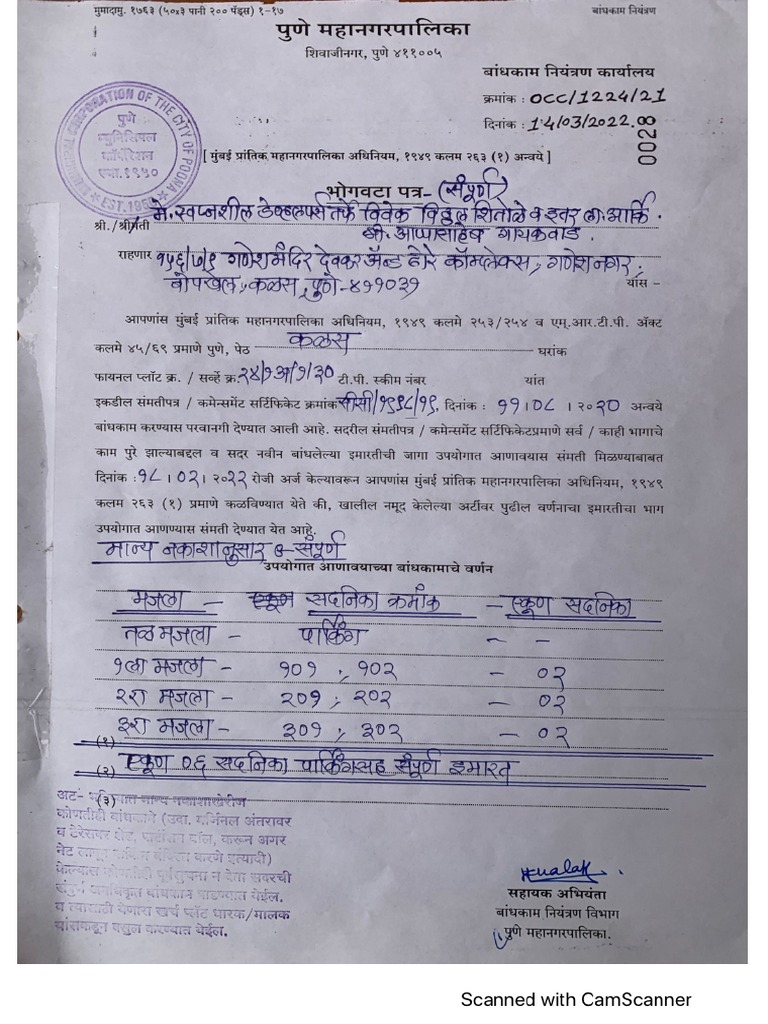 मुमादामु. १७६३ (५०x३ पानी २०० पॅड्स) १-१७
बांधकाम नियंत्रण
पुणे महानगरपालिका
शिवाजीनगर, पुणे ४११००५
बांधकाम नियंत्रण कार्यालय
क्रमांक : OCC/1224/21
दिनांक : 14/03/2022.
0028
MUNICIPAL CORPORATION OF THE CITY OF POONA
पुणे
म्युनिसिपल
कॉर्पोरेशन
स्था.१९५०
EST.1950
[ मुंबई प्रांतिक महानगरपालिका अधिनियम, १९४९ कलम २६३ (१) अन्वये ]
भोगवटा पत्र- (संपूर्ण)
श्री. / श्रीमती मे. स्वप्नशील डेव्हलपर्स तर्फे विवेक विठ्ठल शितोळे व इतर ला. आर्कि.
श्री. आप्पासाहेब गायकवाड.
राहणार १५६/७/९ गणेश मंदिर देवकर अॅन्ड ढोरे कॉम्प्लेक्स, गणेश नगर,
बोपखेल, कळस, पुणे-४११०३१ यांस -
आपणांस मुंबई प्रांतिक महानगरपालिका अधिनियम, १९४९ कलमे २५३/२५४ व एम्.आर.टी.पी. ॲक्ट
कलमे ४५/६९ प्रमाणे पुणे, पेठ कळस घरांक
फायनल प्लॉट क्र. / सर्व्हे क्र. २४/१अ/१/२० टी.पी. स्कीम नंबर यांत
इकडील संमतीपत्र / कमेन्समेंट सर्टिफिकेट क्रमांक सीसी/१९९८/१९, दिनांक : ११।०८।२०२० अन्वये
बांधकाम करण्यास परवानगी देण्यात आली आहे. सदरील संमतीपत्र / कमेन्समेंट सर्टिफिकेटप्रमाणे सर्व / काही भागाचे
काम पुरे झाल्याबद्दल व सदर नवीन बांधलेल्या इमारतीची जागा उपयोगात आणावयास संमती मिळण्याबाबत
दिनांक : १८।०२।२०२२ रोजी अर्ज केल्यावरून आपणांस मुंबई प्रांतिक महानगरपालिका अधिनियम, १९४९
कलम २६३ (१) प्रमाणे कळविण्यात येते की, खालील नमूद केलेल्या अटींवर पुढील वर्णनाचा इमारतीचा भाग
उपयोगात आणण्यास संमती देण्यात येत आहे.
मान्य नकाशानुसार - संपूर्ण
उपयोगात आणावयाच्या बांधकामाचे वर्णन
मजला - सदनिका क्रमांक - एकूण सदनिका
तळ मजला - पार्किंग - -
१ला मजला - १०१, १०२ - ०२
२रा मजला - २०१, २०२ - ०२
३रा मजला - ३०१, ३०२ - ०२
(१)
(२) एकूण ०६ सदनिका पार्किंगसह संपूर्ण इमारत
(३)
अट- भविष्यात मान्य नकाशाखेरीज
कोणतीही बांधकामे (उदा. मार्जिनल अंतरावर
व टेरेसवर शेड, पार्टीशन वॉल, करून अगर
केल्यास कोणतीही पूर्वसुचना न देता सदरची
संपुर्ण अनधिकृत बांधकाम पाडण्यात येईल.
व त्यासाठी येणारा खर्च प्लॉट धारक/मालक
यांसकडून वसुल करण्यात येईल.
सहायक अभियंता
बांधकाम नियंत्रण विभाग
पुणे महानगरपालिका.
Scanned with CamScanner